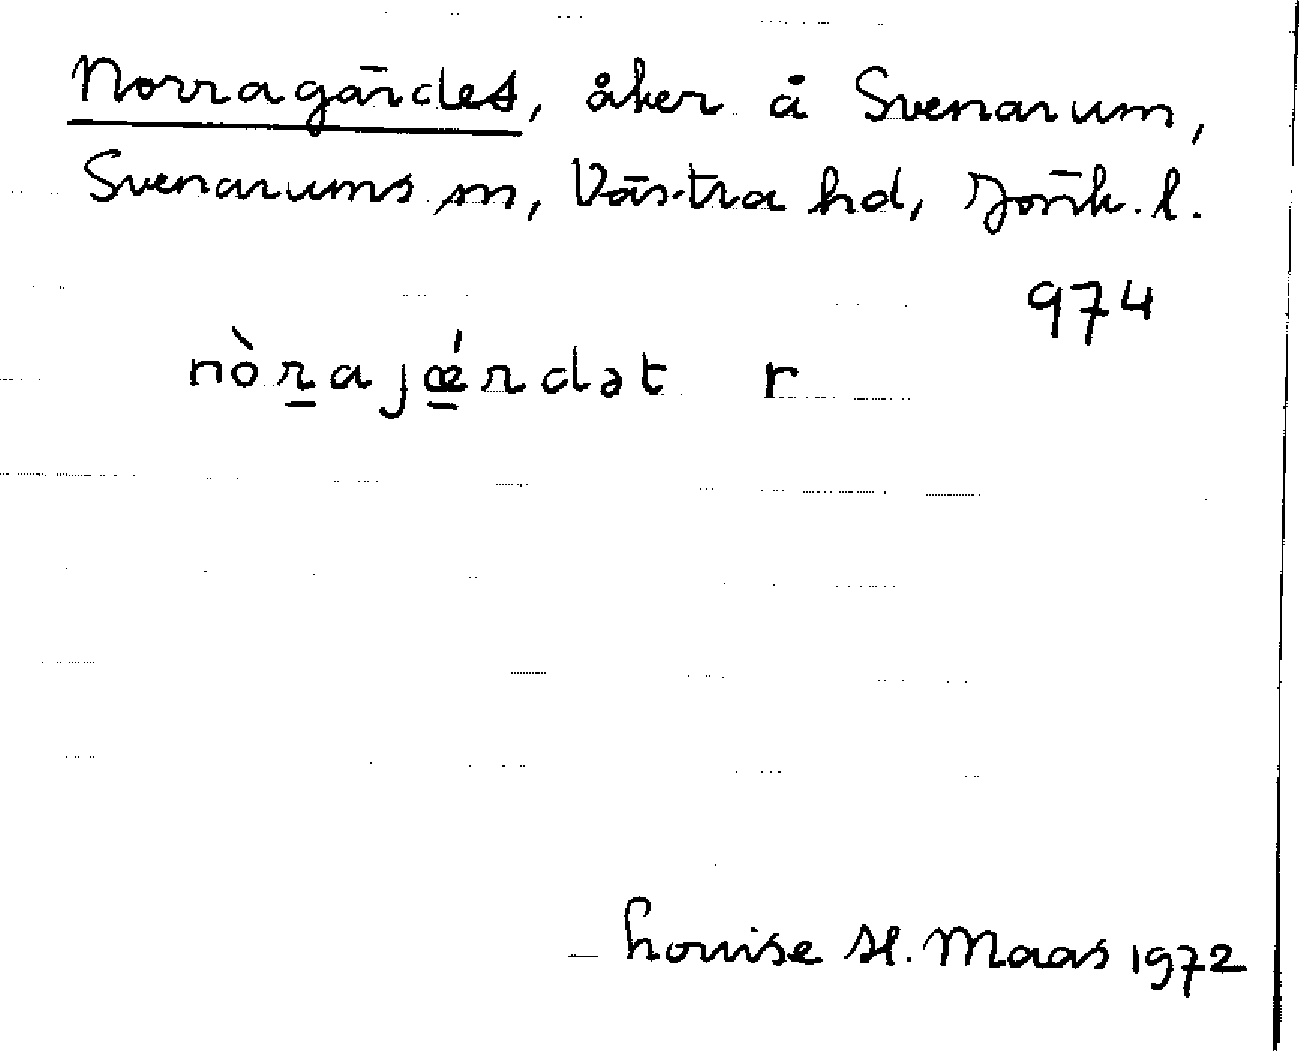 Norragärdet, åker å Svenarum,
Svenarums sn, Västra hd, Jönk. l.
974
nòr̲ajœ̲́rdət r
Louise H. Maas 1972